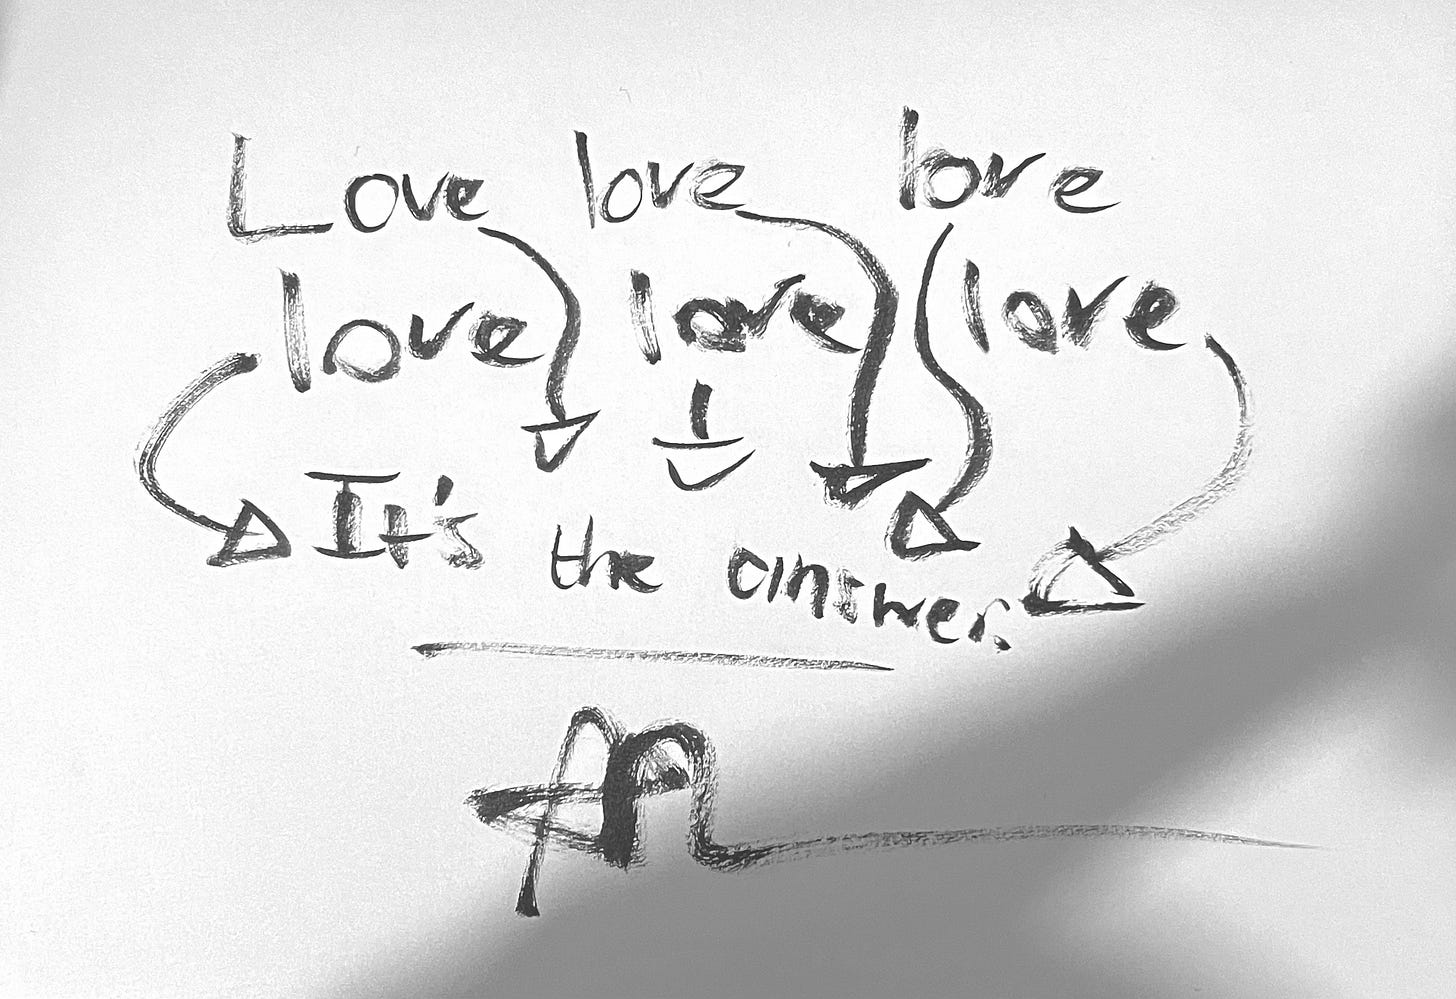 Love love love
love love love
It's the answer.